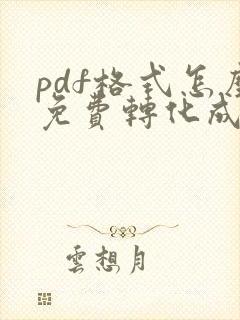 pdf格式怎麼
免費轉化成
雲想月